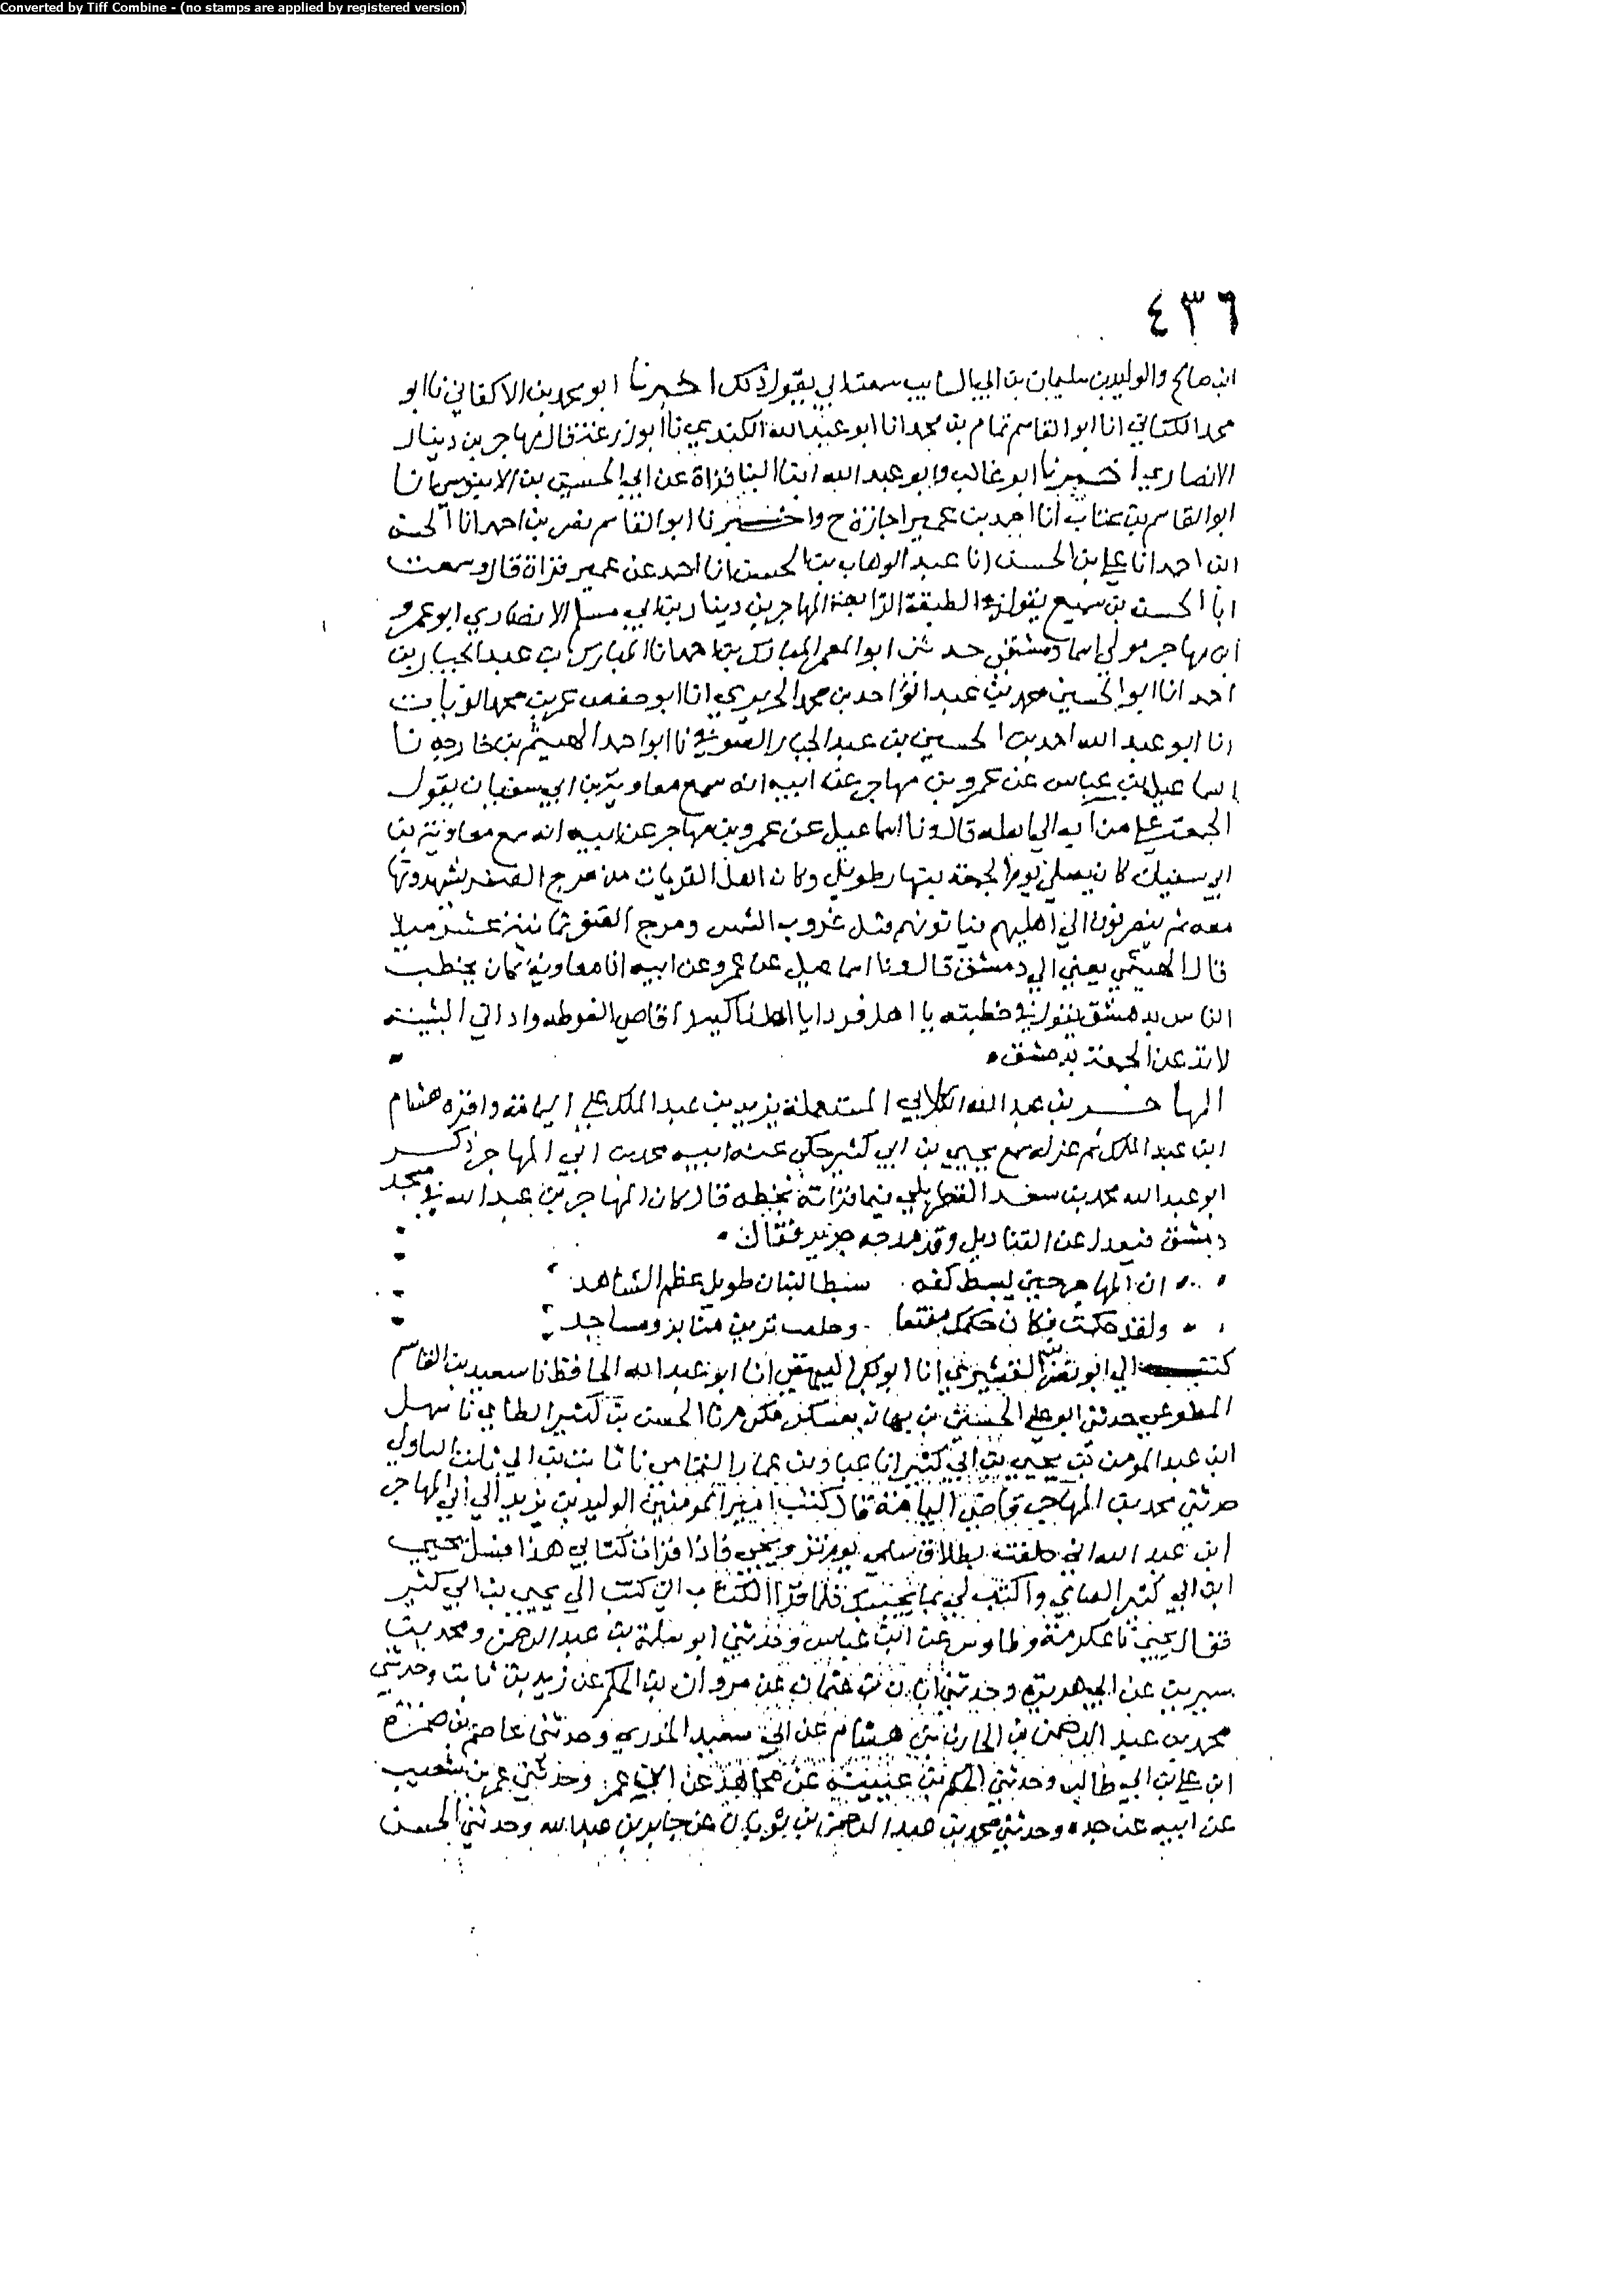 Converted by Tiff Combine - (no stamps are applied by registered version)
٤٣٦
ابن صالح والوليد بن سليمان بن ابي السايب سمعت ابي يقول ذلك اخبرنا ابو محمد بن الاكفاني نا ابو
محمد الكتاني انا ابو القاسم تمام بن محمد انا ابو عبد الله الكندي نا ابو زرعة قال مهاجر بن دينار
الانصاري اخبرنا ابو غالب وابو عبد الله ابنا البنا قراة عن ابي الحسين بن الابنوسي انا
ابو القاسم بن عتاب انا احمد بن عمير اجازة ح واخبرنا ابو القاسم نصر بن احمد انا الحسن
ابن احمد انا علي بن الحسن انا عبد الوهاب بن الحسن انا احمد عن عمير قراة قال وسمعت
ابا الحسن بن سميع يقول في الطبقة الرابعة المهاجر بن دينار بن ابي مسلم الانصاري ابو عمرو
ابن مهاجر مولى اسما دمشقي حدثنا ابو المعمر المبارك بن احمد انا المبارك بن عبد الجبار بن
احمد انا ابو الحسين محمد بن عبد الواحد بن محمد الحريري انا ابو حفص عمر بن محمد الزيات
انا ابو عبد الله احمد بن الحسين بن عبد الجبار الصوفي نا ابو احمد الهيثم بن خارجه نا
اسماعيل بن عياس عن عمرو بن مهاجر عن ابيه انه سمع معاوية بن ابي سفيان يقول
الجمعة على من آب الى اهله قال ونا اسماعيل عن عمرو بن مهاجر عن ابيه انه سمع معاوية بن
ابي سفيان كان يصلي يوم الجمعة بنهار طويل وكان اهل القريات من مرج الصفر يشهدونها
معه ثم ينصرفون الى اهليهم فياتونهم مثل غروب الشمس ومرج الصفر ثمانية عشر ميلا
قال الهيثم يعني الى دمشق قال ونا اسماعيل عن عمرو عن ابيه ان معاوية كان يخطب
الناس بدمشق يقول في خطبته يا اهل قردا يا اهل زاكية اقاصي الغوطه وادانى البثينه
لا تدعن الجمعة بدمشق
المهاجر بن عبد الله الكلابي استعمله يزيد بن عبد الملك على اليمامة واقره هشام
ابن عبد الملك ثم عزله سمع يحيى بن ابي كثير حكى عنه ابنه محمد بن ابي المهاجر ذكر
ابو عبد الله محمد بن سعد القطربلي فيما قراته بخطه قال كان المهاجر بن عبد الله في مسجد
دمشق فيعدل عن القناديل وقد مدحه جرير فقال
ان المهاجر حين يبسط كفه سبط البنان طويل عظم الساعد
ولقد حكمت فكان حكمك مقنعا وخلعت تزين منابر ومساجد
كتب الي ابو نصر القشيري انا ابو بكر البيهقي انا ابو عبد الله الحافظ نا سعيد بن القاسم
المطوعي حدثني ابو علي الحسين بن بهان بعسكر مكرم نا الحسن بن كثير الطاي نا سهل
ابن عبد المومن بن يحيى بن ابي كثير انا عباد بن عمار نا ثابت بن ابي ثابت
حدثني محمد بن المهاجر قاضي اليمامة قال كتب امير المومنين الوليد بن يزيد الى ابي المهاجر
ابن عبد الله اني حلفت بطلاق سلمى يوم تزويجي فاذا قرات كتابي هذا فسل يحيى
ابن ابي كثير اليمامي واكتب لي بما يجيبك فلما قرا الكتاب ابي كتب الى يحيى بن ابي كثير
فقال يحيى نا عكرمة وطاوس عن ابن عباس وحدثني ابو سلمة بن عبد الرحمن ومحمد بن
سيرين عن ابي هريرة وحدثني ابان بن عثمان عن مروان بن الحكم عن زيد بن ثابت وحدثني
محمد بن عبد الرحمن بن الحارث بن هشام عن ابي سعيد الخدري وحدثني عاصم بن ضمرة
ابن علي بن ابي طالب وحدثني الحكم بن عتيبة عن مجاهد عن ابن عمر وحدثني عمر بن شعيب
عن ابيه عن جده وحدثني محمد بن عبد الرحمن بن ثوبان عن جابر بن عبد الله وحدثني الحسن